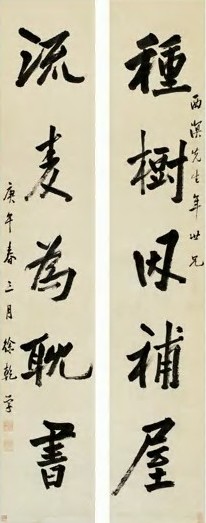 西溟先生年世兄
種樹因補屋
流麦為耽書
庚午春三月徐乾学